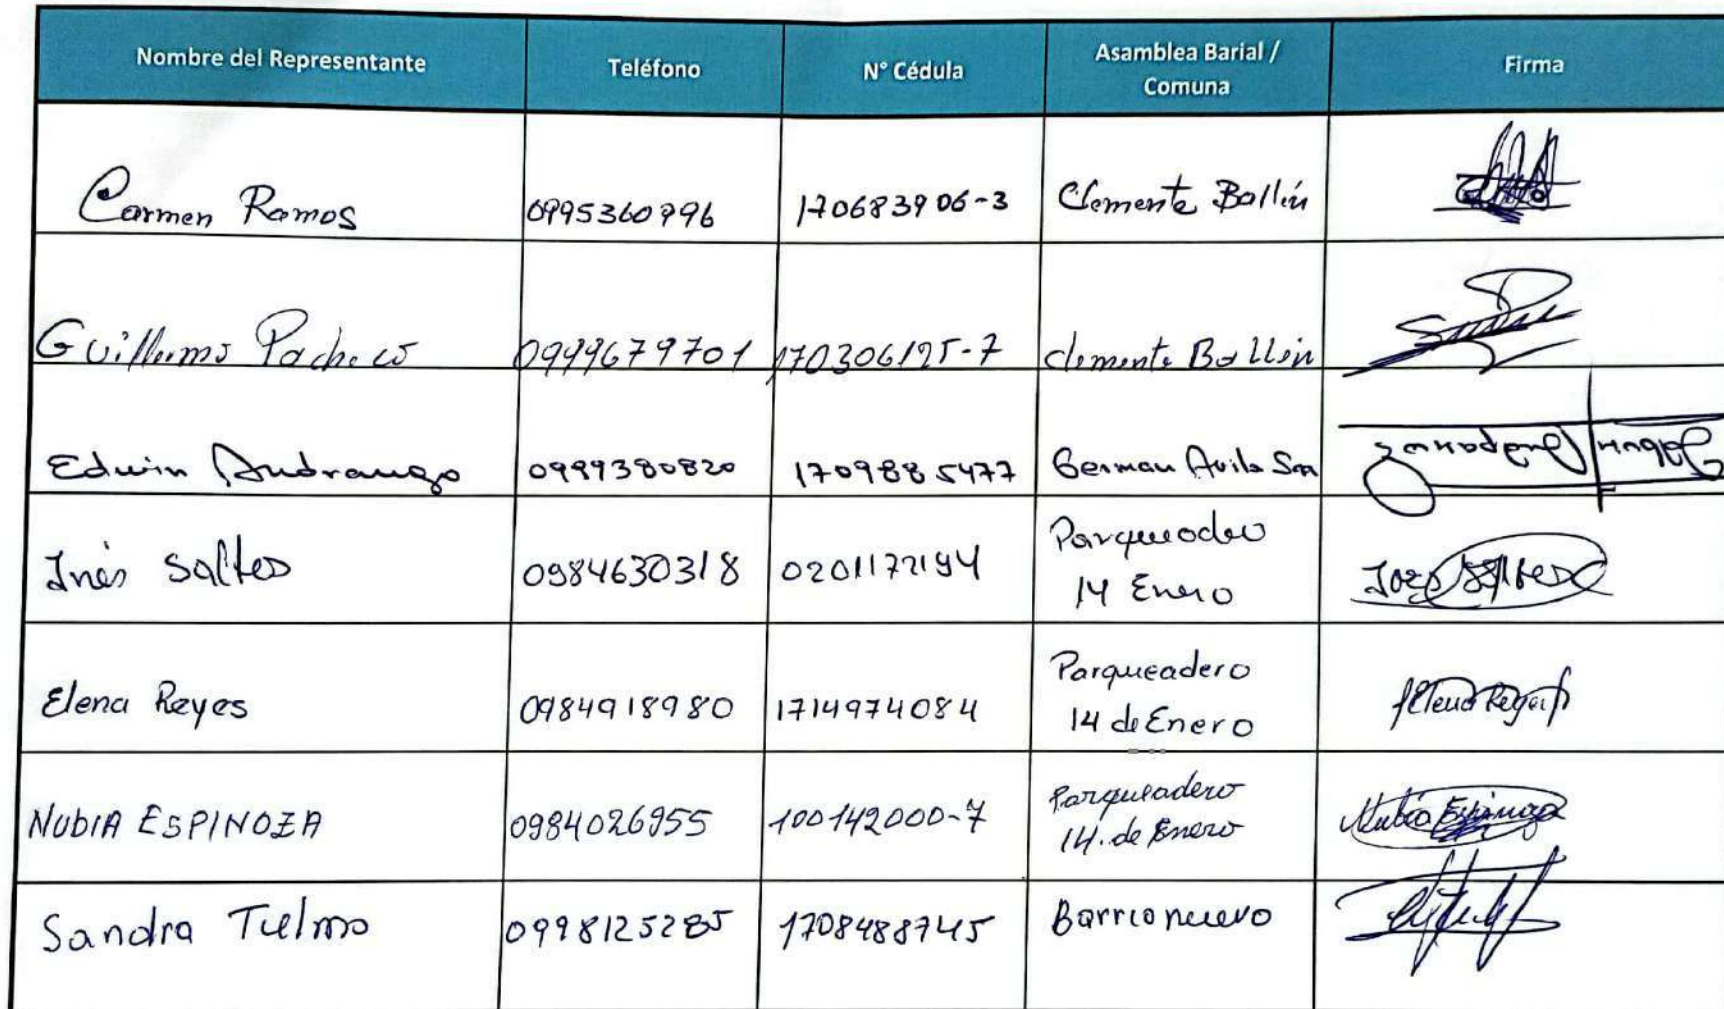 Nombre del Representante
Teléfono
N° Cédula
Asamblea Barial /
Comuna
Firma
Carmen Ramos
0995360996
170683906-3
Clemente Ballén
Guillermo Pacheco
0999679701
170306125-7
Clemente Ballén
Edwin Andrango
0999380820
1709885477
German Avila
Inés Saltos
0984630318
0201172194
Parqueadero
14 Enero
Elena Reyes
0984918980
1714974084
Parqueadero
14 de Enero
NUBIA ESPINOZA
0984026955
100142000-7
Parqueadero
14 de Enero
Nubia Espinoza
Sandra Tulmo
0998125285
1708488745
Barrionuevo